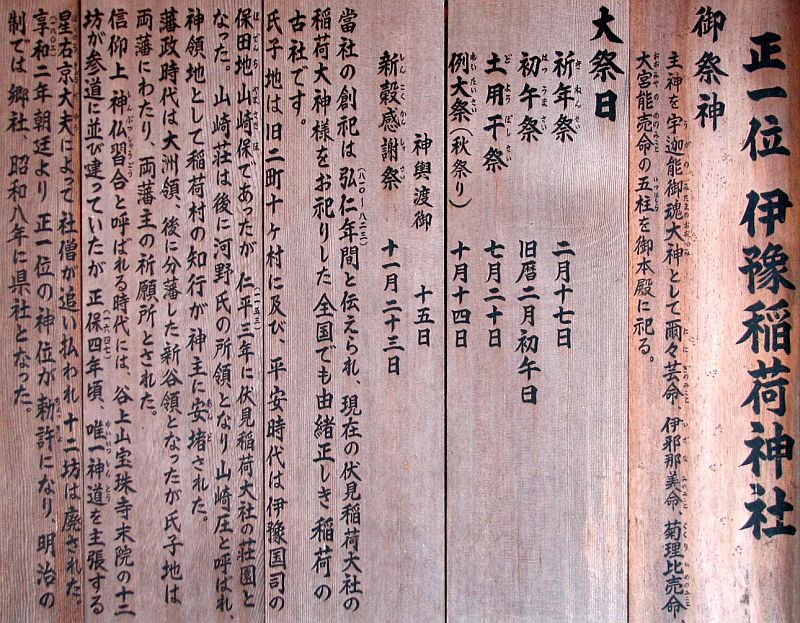 正一位 伊豫稲荷神社
御祭神
主神を宇迦能御魂大神として爾々芸命、伊邪那美命、菊理比売命、
大宮能売命の五柱を御本殿に祀る。
大祭日
祈年祭 二月十七日
初午祭 旧暦二月初午日
土用干祭 七月二十日
例大祭(秋祭り) 十月十四日
神輿渡御 十五日
新穀感謝祭 十一月二十三日
當社の創祀は弘仁年間(八一〇〜八二三)と伝えられ、現在の伏見稲荷大社の
稲荷大神様をお祀りした全国でも由緒正しき稲荷の
古社です。
氏子地は旧二町十ヶ村に及び、平安時代は伊豫国司の
保田地山崎保であったが 仁平三年(一一五三)に伏見稲荷大社の荘園と
なった。山崎荘は後に河野氏の所領となり山崎庄と呼ばれ、
神領地として稲荷村の知行が神主に安堵された。
藩政時代は大洲領、後に分藩した新谷領となったが氏子地は
両藩にわたり、両藩主の祈願所とされた。
信仰上 神仏習合と呼ばれる時代には、谷上山宝珠寺末院の十二
坊が参道に並び建っていたが 正保四年(一六四七)頃、唯一神道を主張する
星右京大夫によって社僧が追い払われ十二坊は廃された。
享和二年(一八〇二)朝廷より 正一位の神位が勅許になり、明治の
制では郷社、昭和八年に県社となった。